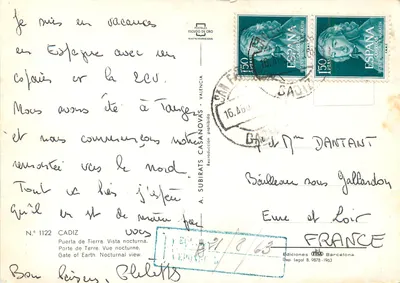 Je suis en vacances
en Espagne avec un
copain et la 2CV.
Nous avons été à Tanger
et nous commençons notre
remontée vers le nord.
Tout va bien j'espère
qu'il en est de même pour
vous
Bons baisers,
N.º 1122 CADIZ
Puerta de Tierra. Vista nocturna.
Porte de Terre. Vue nocturne.
Gate of Earth. Nocturnal view
A. SUBIRATS CASANOVAS - VALENCIA
1'50
ESPAÑA
1'50
ESPAÑA
et Mme DANTANT
Bailleau sous Gallardon
Eure et Loir
FRANCE
Ediciones Barcelona